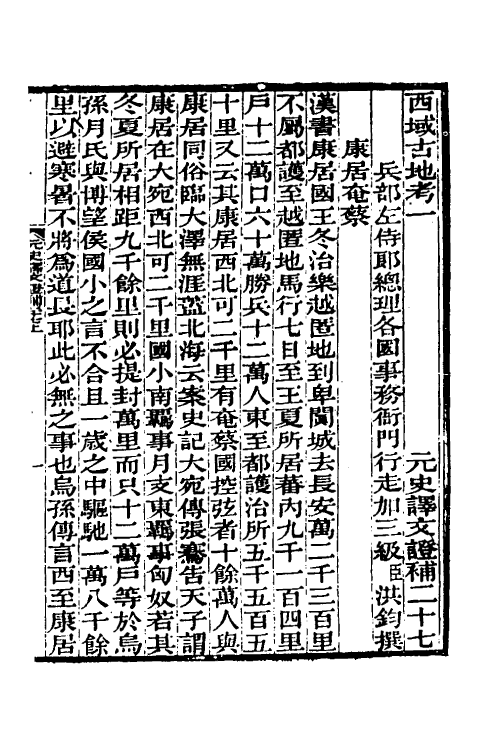 西域古地考一　元史譯文證補二十七
兵部左侍郎總理各國事務衙門行走加三級臣洪鈞撰
康居奄蔡
漢書康居國王冬治樂越匿地到卑闐城去長安萬二千三百里
不屬都護至越匿地馬行七日至王夏所居蕃內九千一百四里
戶十二萬口六十萬勝兵十二萬人東至都護治所五千五百五
十里又云其康居西北可二千里有奄蔡國控弦者十餘萬人與
康居同俗臨大澤無涯蓋北海云案史記大宛傳張騫告天子謂
康居在大宛西北可二千里國小南羈事月支東羈事匈奴若其
冬夏所居相距九千餘里則必提封萬里而只十二萬戶等於烏
孫月氏與博望侯國小之言不合且一歲之中驅馳一萬八千餘
里以避寒暑不將爲道長耶此必無之事也烏孫傳言西至康居
元史譯文證補二十七
一